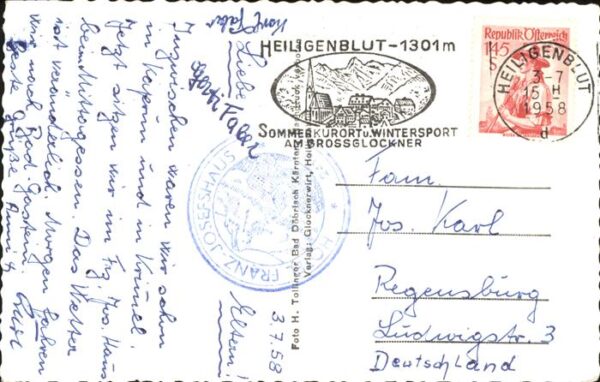 HEILIGENBLUT - 1301m
SOMMERKURORT u. WINTERSPORT
AM GROSSGLOCKNER
Republik Österreich
1.45
S
HEILIGENBLUT
3-7
15 H
1958
d
Fam.
Jos. Karl
Regensburg
Ludwigstr. 3
Deutschland
Liebe
Eltern!
3.7.58
Inzwischen waren wir schon
in Kaprun und in Krimml.
Jetzt sitzen wir im Frz. Jos. Haus
beim Mittagessen. Das Wetter
ist veränderlich. Morgen fahren
wir nach Bad Gastein.
Beste Grüße
Faber
Faber
FRANZ-JOSEFSHAUS
Foto H. Tollinger Bad Döbriach Kärnten
Verlag: Glocknerwirt, Hei